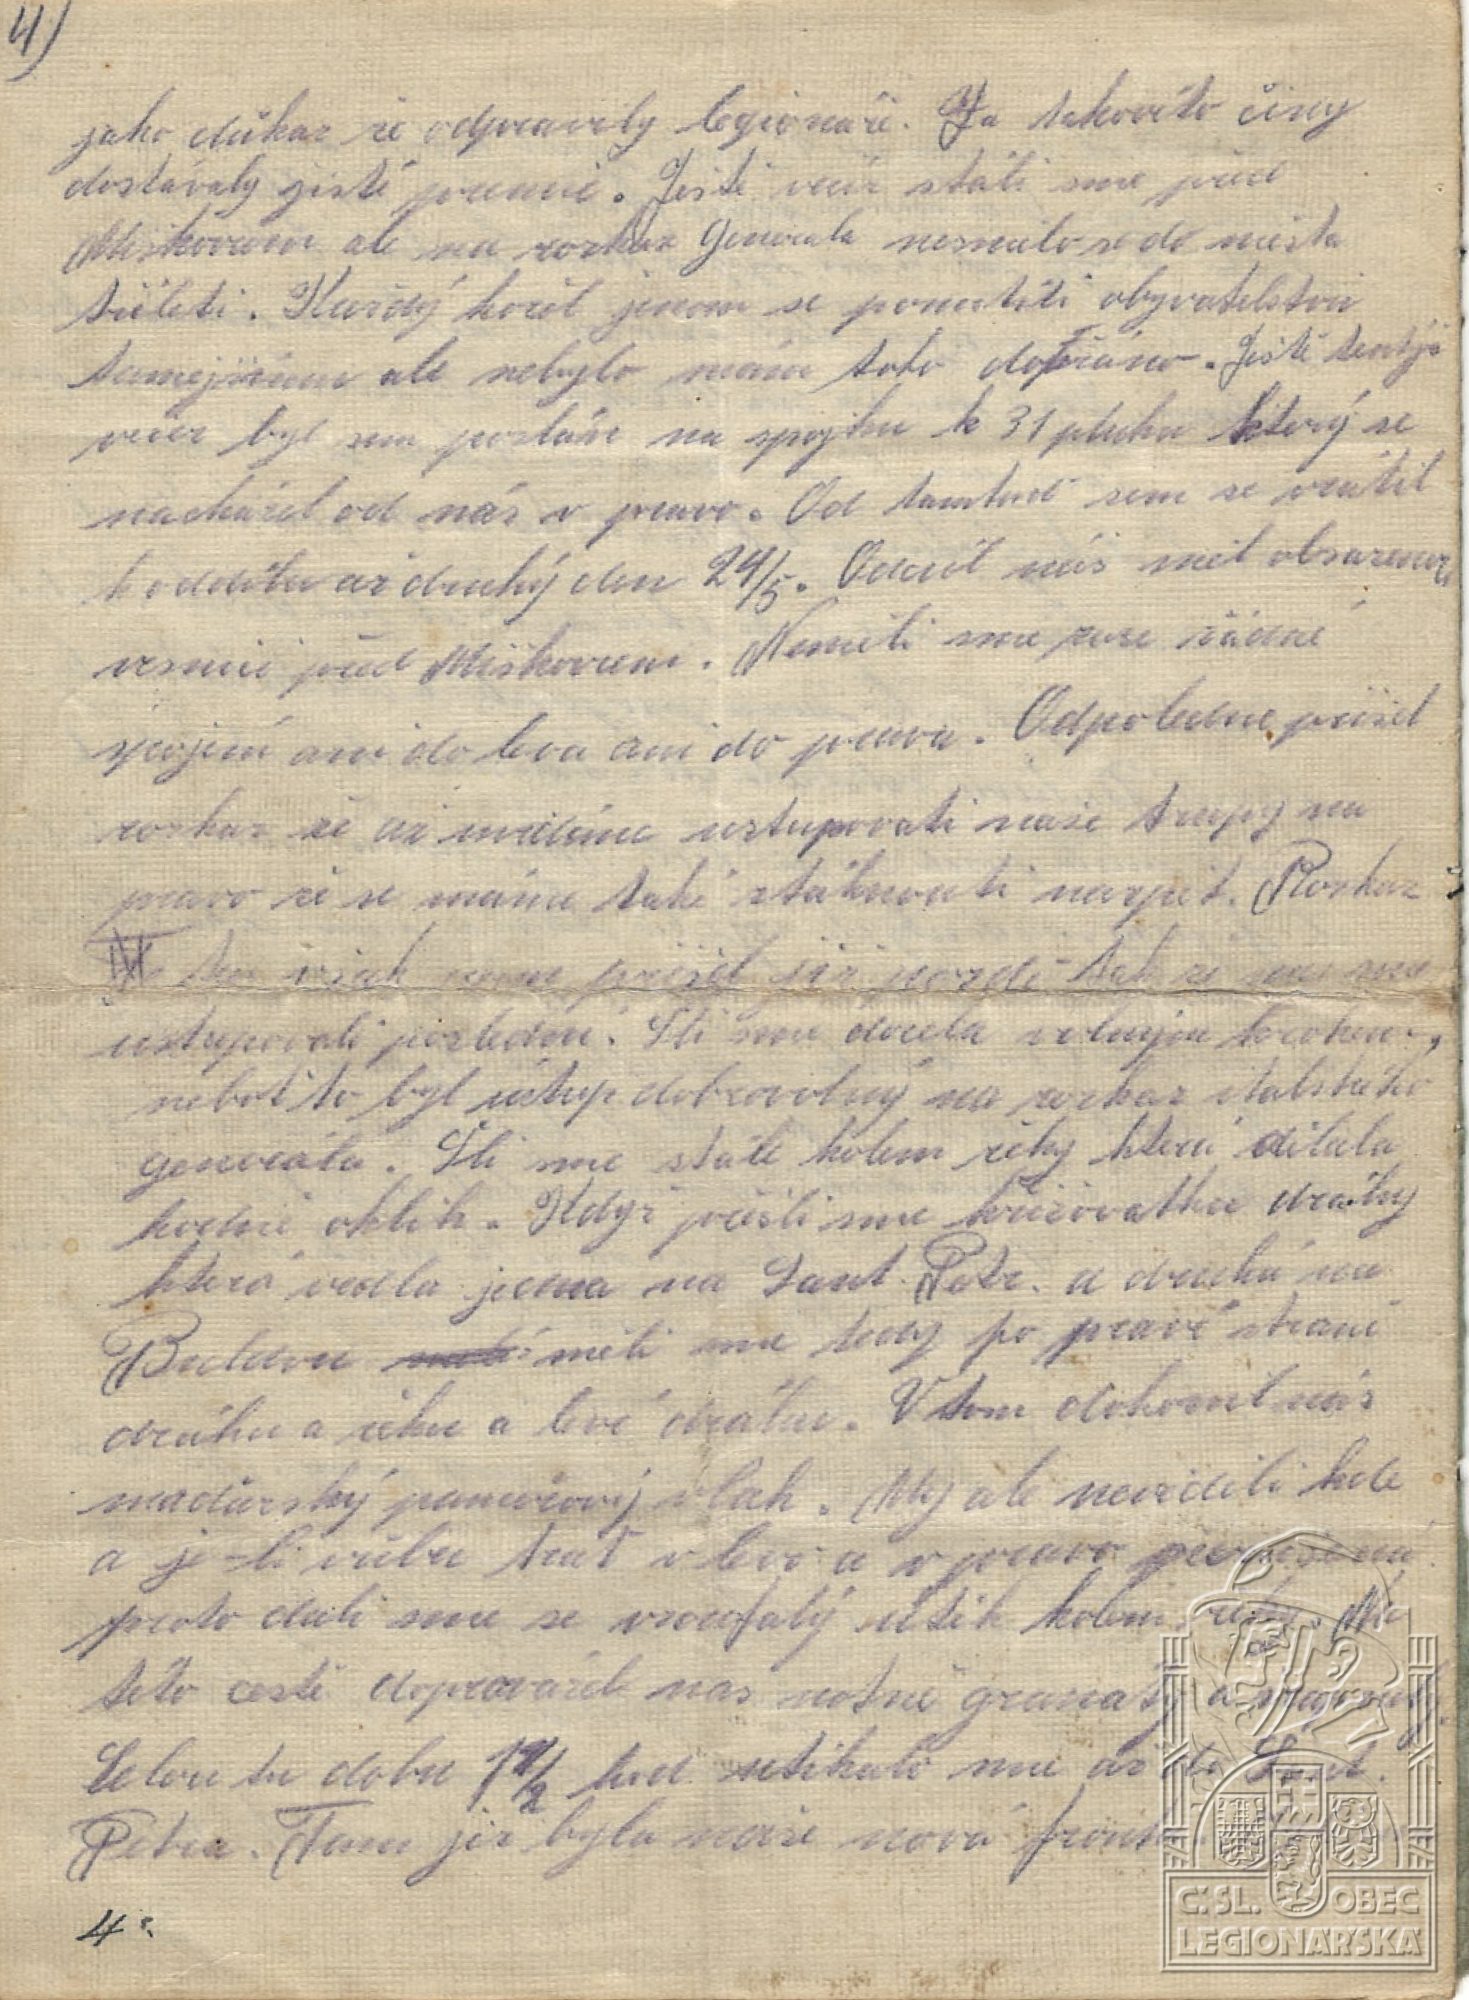 4)
jako důkaz že odpravily legionáře. Za takovéto činy
dostávaly jisté premie. Ještě večír stáli sme před
Miškovcem ale na rozkaz Generala nesmělo se do města
stříleti. Každý hořel jenom se pomstíti obyvatelstvu
tamejšímu ale nebylo nám toto dopřáno. Ještě tentýž
večer byl sem poslán na spojku k 31 pluku který se
nacházel od nás v pravo. Od tamtud sem se vrátil
k oddílu až druhý den 24/5. Oddíl náš měl obsazenou
vesnici před Miškovcem. Neměli sme zase žádné
spojení ani do leva ani do prava. Odpoledne přišel
rozkaz že až uvidíme ustupovati naše trupy na
pravo že se máme také stáhnouti nazpět. Rozkaz
ten však nám přišel již pozdě tak že sme
ustupovali poslední. Šli sme docela volným krokem,
neboť to byl ústup dobrovolný na rozkaz italského
generála. Šli sme stále kolem řeky která dělala
hodně oklik. Když přišli sme křižovatku dráhy
která vedla jedna na Sant. Petr. a druhá na
měli sme tedy po pravé straně
dráhu a řeku a levé dráhu. V tom dohonil nás
maďarský pancéřový vlak. My ale nevěděli kde
a je-li vůbec trať v levo a v pravo přerušená
proto dali sme se v zoufalý útěk kolem řeky. Na
této cestě doprovázeli nás notně granáty a
Celou tu dobu 1 1/2 hod utíkali sme až do Sant.
Petra. Tam již byla naše nová fronta.
4.
Č.SL. OBEC
LEGIONÁŘSKÁ